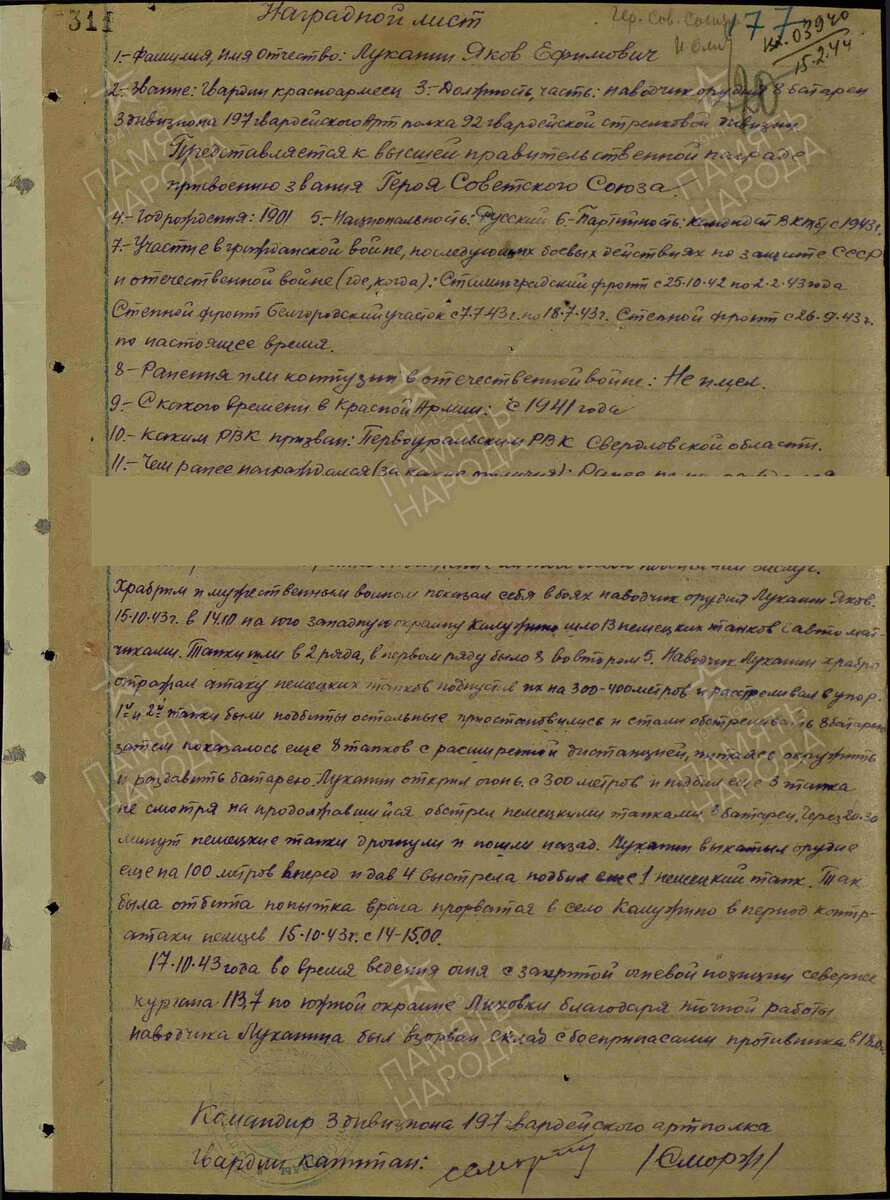 311
Наградной лист
Гер. Сов. Союза
177
вх. 03940
15.2.44
20
1.- Фамилия, Имя Отчество: Луканин Яков Ефимович
2.- Звание: Гвардии красноармеец 3.- Должность, часть: наводчик орудия 8 батареи
3 дивизиона 197 гвардейского Арт полка 92 гвардейской стрелковой дивизии
Представляется к высшей правительственной награде
присвоению звания Героя Советского Союза
4.- Год рождения: 1901 5.- Национальность: Русский 6.- Партийность: кандидат ВКП(б) с 1943г.
7.- Участие в гражданской войне, последующих боевых действиях по защите СССР
и отечественной войне (где, когда): Сталинградский фронт с 25-10-42 по 2-2-43 года
Степной фронт Белгородский участок с 7.7.43г. по 18.7.43г. Степной фронт с 26.9.43г.
по настоящее время.
8.- Ранения или контузии в отечественной войне: Не имел.
9.- С какого времени в Красной Армии: с 1941 года
10.- Каким РВК призван: Первоуральским РВК Свердловской области.
11.- Чем ранее награждался (за какие отличия): Ранее не
Храбрым и мужественным воином показал себя в боях наводчик орудия Луканин Яков.
15.10.43г. в 14.10 на юго западную окраину Калужино шло 13 немецких танков с автомат-
чиками. Танки шли в 2 ряда, в первом ряду было 8 во втором 5. Наводчик Луканин храбро
отражал атаку немецких танков подпустил их на 300-400 метров и расстреливал в упор.
1й и 2й танки были подбиты остальные приостановились и стали обстреливать 8 батарею
затем показалось еще 8 танков с расширенной дистанцией, пытаясь окружить
и раздавить батарею. Луканин открыл огонь с 300 метров и подбил еще 3 танка
не смотря на продолжавшийся обстрел немецкими танками 8 батареи. Через 20-30
минут немецкие танки дрогнули и пошли назад. Луканин выкатил орудие
еще на 100 метров вперед и дав 4 выстрела подбил еще 1 немецкий танк. Так
была отбита попытка врага прорватся в село Калужино в период контр-
атаки немцев 15.10.43г. с 14-15.00.
17.10.43 года во время ведения огня с закрытой огневой позиции севернее
кургана 113,7 по южной окраине Лиховки благодаря точной работы
наводчика Луканина был взорван склад с боеприпасами противника
Командир 3 дивизиона 197 гвардейского артполка
Гвардии капитан: /Сморж/
ПАМЯТЬ НАРОДА